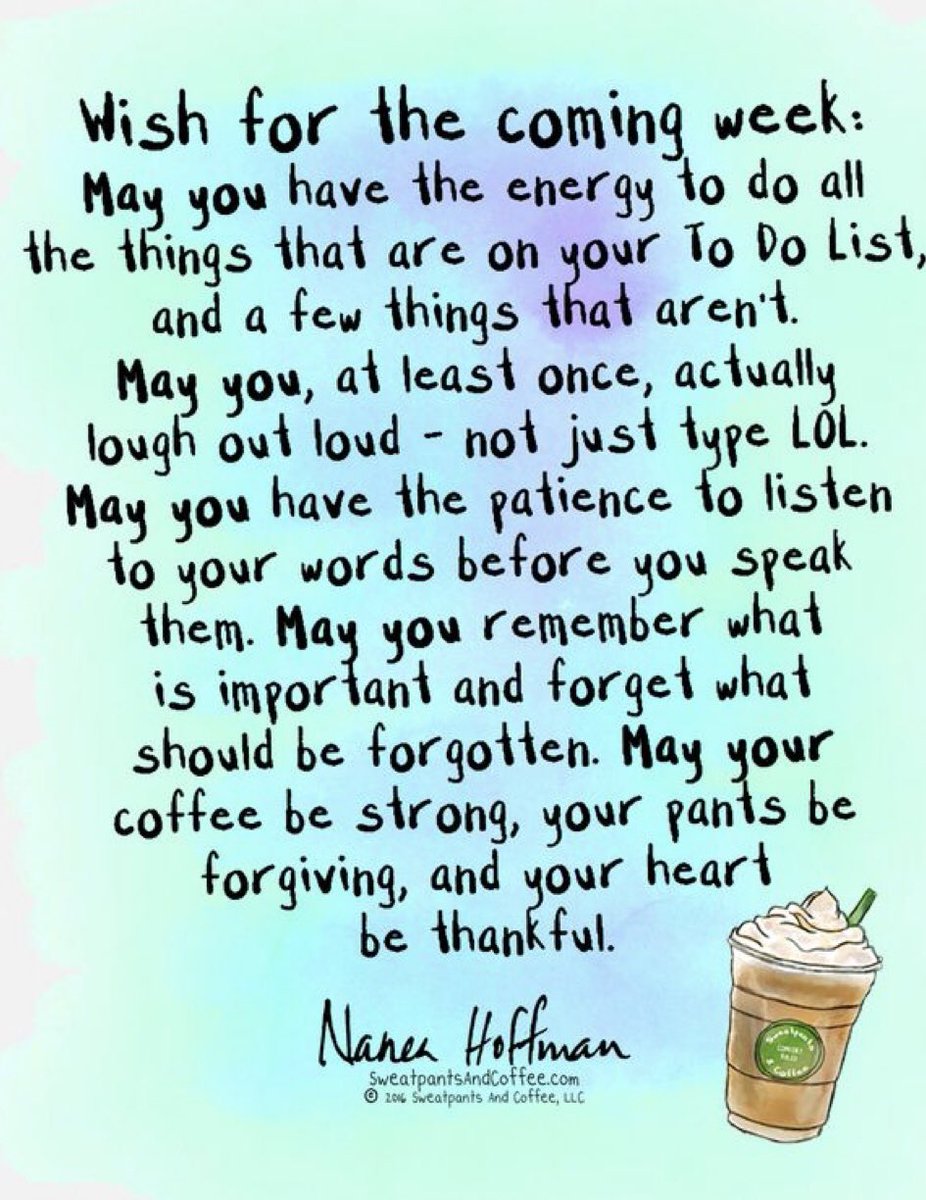 Wish for the coming week:
May you have the energy to do all
the things that are on your To Do List,
and a few things that aren't.
May you, at least once, actually
lough out loud - not just type LOL.
May you have the patience to listen
to your words before you speak
them. May you remember what
is important and forget what
should be forgotten. May your
coffee be strong, your pants be
forgiving, and your heart
be thankful.
Nanea Hoffman
SweatpantsAndCoffee.com
© 2016 Sweatpants And Coffee, LLC
Sweatpants
& Coffee